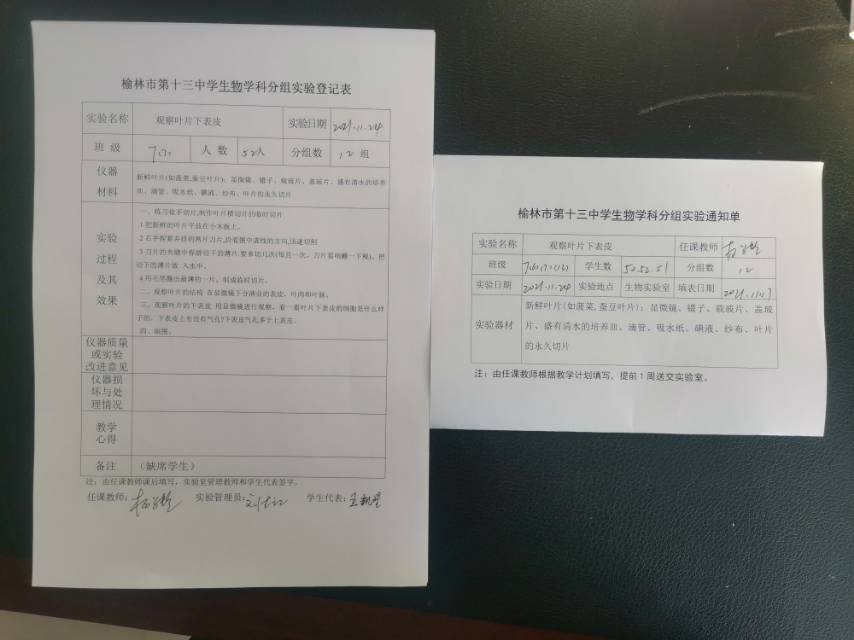 榆林市第十三中学生物学科分组实验登记表
实验名称 观察叶片下表皮 实验日期 2021.11.24
班 级 人 数 52人 分组数 12 组
仪器材料
新鲜叶片(如菠菜,蚕豆叶片);显微镜、镊子、载玻片、盖玻片、盛有清水的培养
皿、滴管、吸水纸、碘液、纱布、叶片的永久切片
实验过程及其效果
一、练习徒手切片,制作叶片横切片的临时切片
1.把新鲜的叶片平放在小木板上。
2.右手捏紧并排的两片刀片,沿着图中虚线的方向,迅速切割
3.刀片的夹缝中存有切下的薄片.要多切几次(每切一次,刀片要蘸一下水),把
切下的薄片放 入水中。
4.用毛笔蘸出最薄的一片,制成临时切片。
二、观察叶片的结构 在显微镜下分清楚的表皮、叶肉和叶脉。
三、观察叶片的下表皮 用显微镜进行观察,看一看叶片下表皮的细胞是什么样
子的。下表皮上有没有气孔?下表皮气孔多于上表皮。
四、画图。
仪器质量
或实验
改进意见
仪器损
坏与处
理情况
教学
心得
备注 (缺席学生)
注:由任课教师课后填写,实验室管理教师和学生代表签字。
任课教师: 实验管理员: 学生代表:
榆林市第十三中学生物学科分组实验通知单
实验名称 观察叶片下表皮 任课教师
班级 学生数 50.52.51 分组数 12
实验日期 2021.11.24 实验地点 生物实验室 填表日期 2021.11.17
实验器材
新鲜叶片(如菠菜,蚕豆叶片);显微镜、镊子、载玻片、盖玻
片、盛有清水的培养皿、滴管、吸水纸、碘液、纱布、叶片
的永久切片
注:由任课教师根据教学计划填写,提前1周送交实验室。